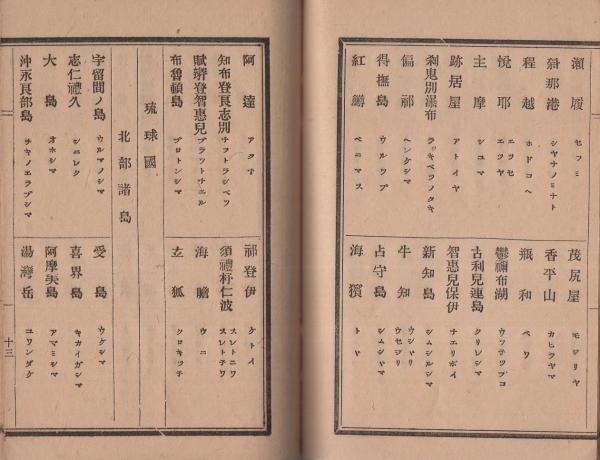 瀬履 セフミ
斜那港 シヤナノミナト
程越 ホドコヘ
悦耶 エツヤ ニツセ
主摩 シユマ
跡居屋 アトイヤ
刹鬼別瀑布 ラツキベツノタキ
偏祁 ヘンケシマ
得撫島 ウルツプ
紅鱒 ベニマス
茂尻屋 モジリヤ
香平山 カヒラヤマ
瓶和 ペワ
鬱禰布湖 ウツナツプコ
古利兒連島 クリレシマ
智惠兒保伊 チエリポイ
新知島 シムシルシマ
牛知 ウシヤリ ウセジリ
占守島 シムシヤマ
海獱 トヤ
阿達 アタマ
知布登良志別 チフトラシベツ
賦拵登智惠兒 プラフトナニル
布魯頓島 プロトンシマ
琉球國
北部諸島
宇留間ノ島 ウルマノシマ
志仁禮久 シニレク
大島 オホシマ
沖永良部島 オキノエラブシマ
祁登伊 ケトイ
須禮朾仁波 スレトニワ スレトチワ
海膽 ウニ
玄狐 クロキツチ
受島 ウケシマ
喜界島 キカイガシマ
阿摩美島 アマミシマ
湯灣岳 ユワンダケ
十三